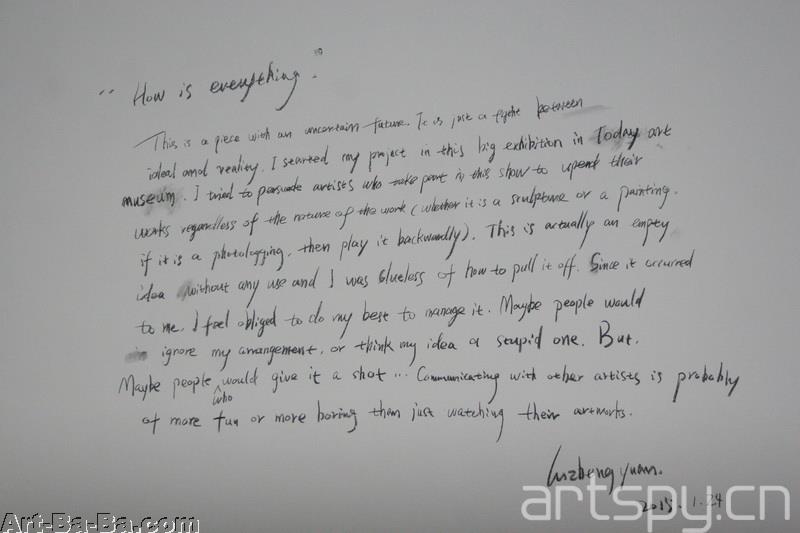 "How is everything"
This is a piece with an uncertain future. It is just a fight between
ideal and reality. I started my project in this big exhibition in Today art
museum. I tried to persuade artists who take part in this show to upend their
works regardless of the nature of the work (whether it is a sculpture or a painting.
if it is a photologging, then play it backwardly). This is actually an empty
idea without any use and I was blueless of how to pull it off. Since it occurred
to me. I feel obliged to do my best to manage it. Maybe people would
ignore my arrangement, or think my idea a stupid one. But.
Maybe people would give it a shot ... Communicating with other artists is probably
who
of more fun or more boring then just watching their artworks.
2015.1.24
artspy.cn
Art-Ba-Ba.com